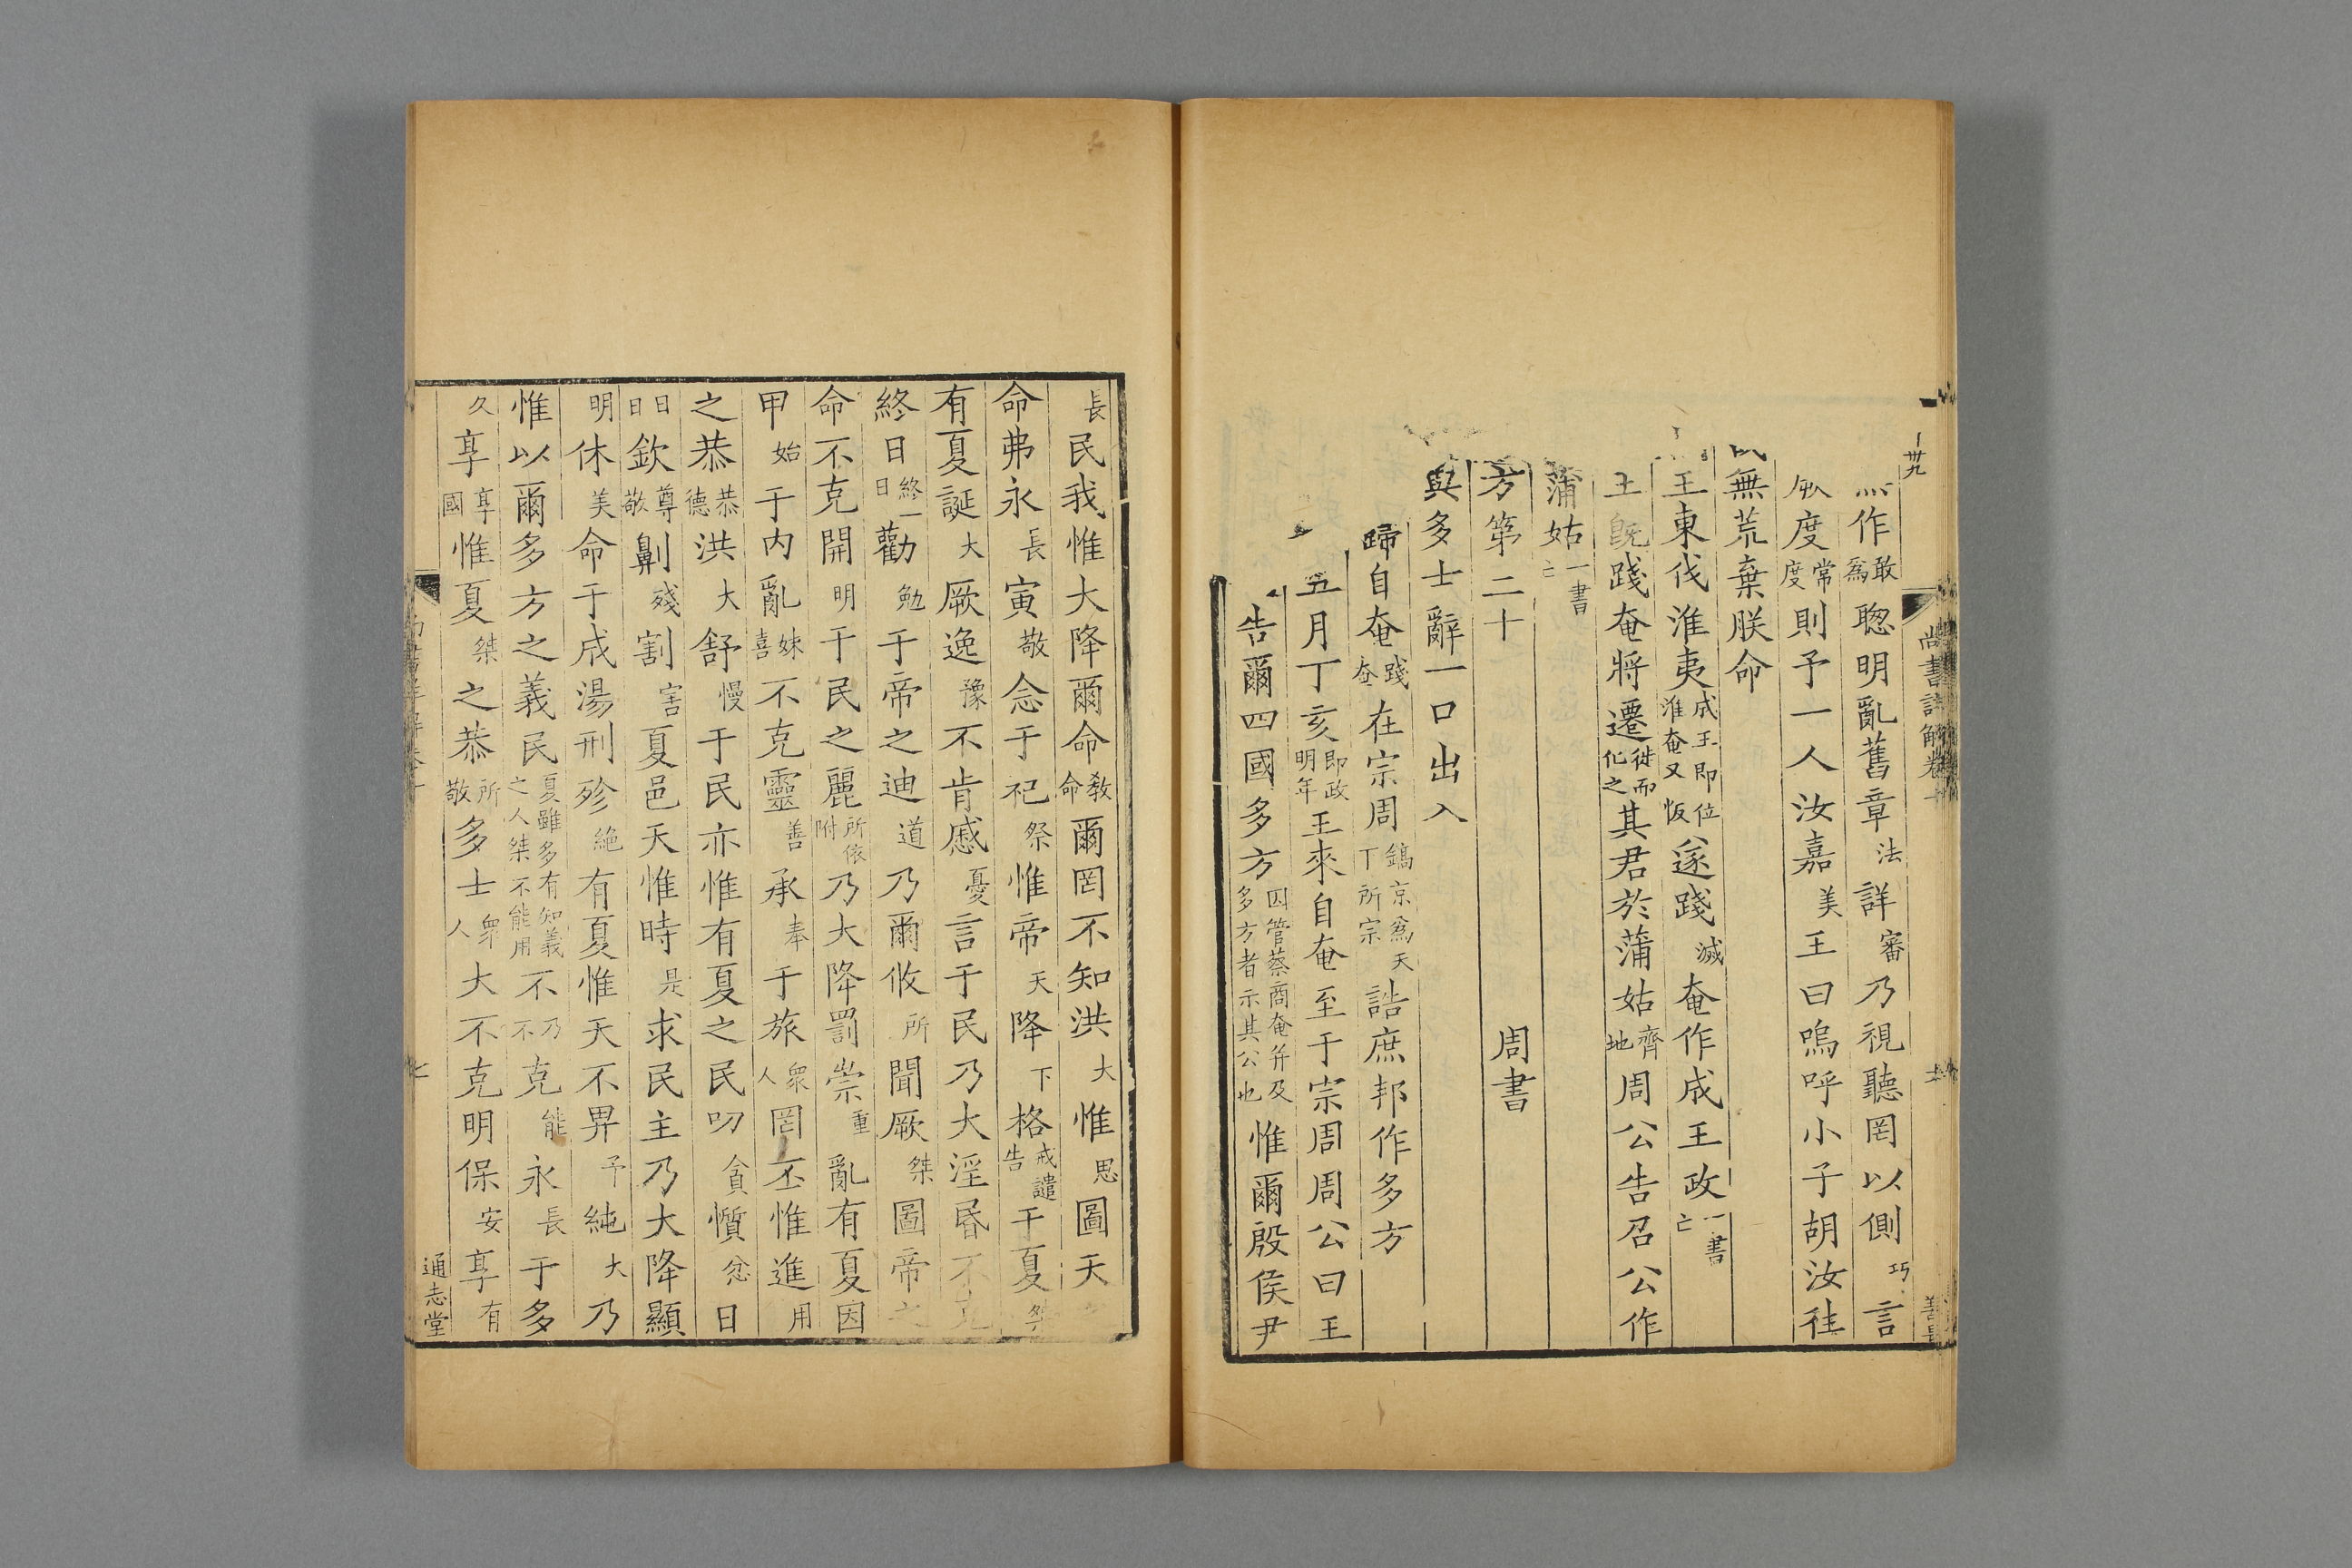 作敢爲聰明亂舊章法詳審乃視聽罔以側巧言
厥度常度則予一人汝嘉美王曰嗚呼小子胡汝往
無荒棄朕命
王東伐淮夷成王即位淮奄又叛遂踐滅奄作成王政一書亡
王既踐奄將遷徙而化之其君於蒲姑齊地周公告召公作
蒲姑一書亡
方第二十 周書
與多士辭一口出入
歸自奄踐奄在宗周鎬京爲天丁所宗誥庶邦作多方
五月丁亥即政明年王來自奄至于宗周周公曰王
告爾四國多方因管蔡商奄并及多方者示其公也惟爾殷侯尹
尚書詳解卷十
長民我惟大降爾命教命爾罔不知洪大惟思圖天
命弗永長寅敬念于祀祭惟帝天降下格戒譴告于夏桀
有夏誕大厥逸豫不肯慼憂言于民乃大淫昬不克
終日終一日勸勉于帝之迪道乃爾攸所聞厥桀圖帝之
命不克開明于民之麗所依附乃大降罰崇重亂有夏因
甲始于内亂妹喜不克靈善承奉于旅衆人罔丕惟進用
之恭恭德洪大舒慢于民亦惟有夏之民叨貪懫忿日
日日欽尊敬劓殘割害夏邑天惟時是求民主乃大降顯
明休美命于成湯刑殄絶有夏惟天不畀予純大乃
惟以爾多方之義民夏雖多有知義之人桀不能用不乃不克能永長于多
久享享國惟夏桀之恭所敬多士衆人大不克明保安享有
通志堂